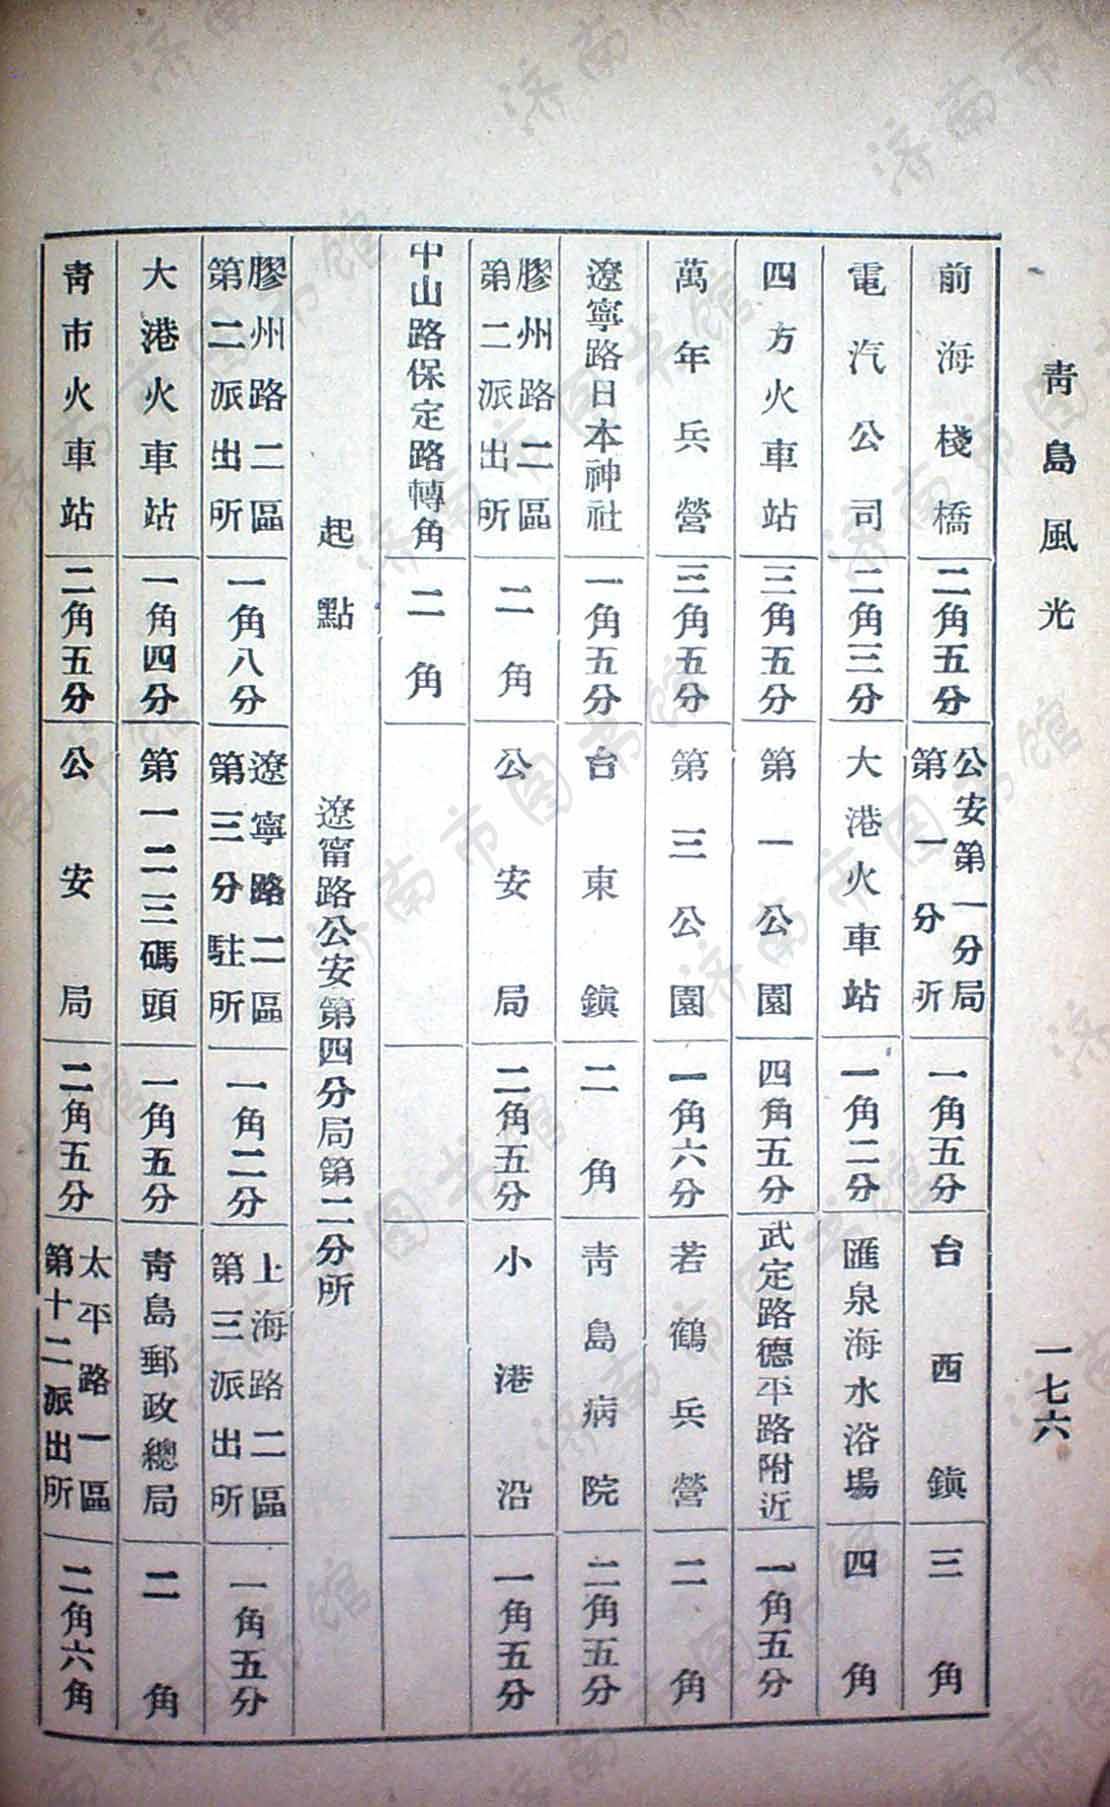 青島風光
一七六
前海棧橋 二角五分 公安第一分局第一分所 一角五分 台西鎮 三角
電汽公司 二角三分 大港火車站 一角二分 匯泉海水浴場 四角
四方火車站 三角五分 第一公園 四角五分 武定路德平路附近 一角五分
萬年兵營 三角五分 第三公園 一角六分 若鶴兵營 二角
遼寧路日本神社 一角五分 台東鎮 二角 青島病院 二角五分
膠州路二區第二派出所 二角 公安局 二角五分 小港沿 一角五分
中山路保定路轉角 二角
起點 遼甯路公安第四分局第二分所
膠州路二區第二派出所 一角八分 遼寧路二區第三分駐所 一角二分 上海路二區第三派出所 一角五分
大港火車站 一角四分 第一二三碼頭 一角五分 青島郵政總局 二角
青市火車站 二角五分 公安局 二角五分 太平路一區第十二派出所 二角六角
济南市图书馆